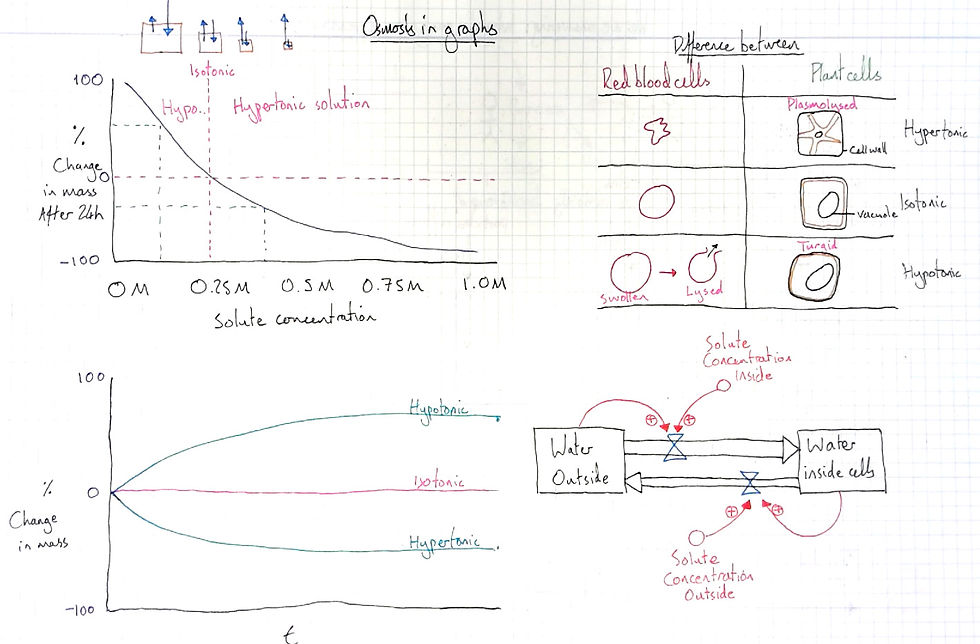 Osmosis in graphs
Isotonic
100
Hypo..
Hypertonic solution
%
Change
in mass
After 24h
0
-100
0M
0.25M
0.5M
0.75M
1.0M
Solute concentration
Difference between
Red blood cells
Plant cells
Plasmolused
Hypertonic
Cell wall
Isotonic
vacuole
Turgid
Hypotonic
Swollen
Lysed
100
Hypotonic
%
0
Isotonic
Change
in mass
Hypertonic
-100
t
Solute
Concentration
Inside
+
+
Water
Outside
Water
inside cells
+
+
Solute
Concentration
Outside